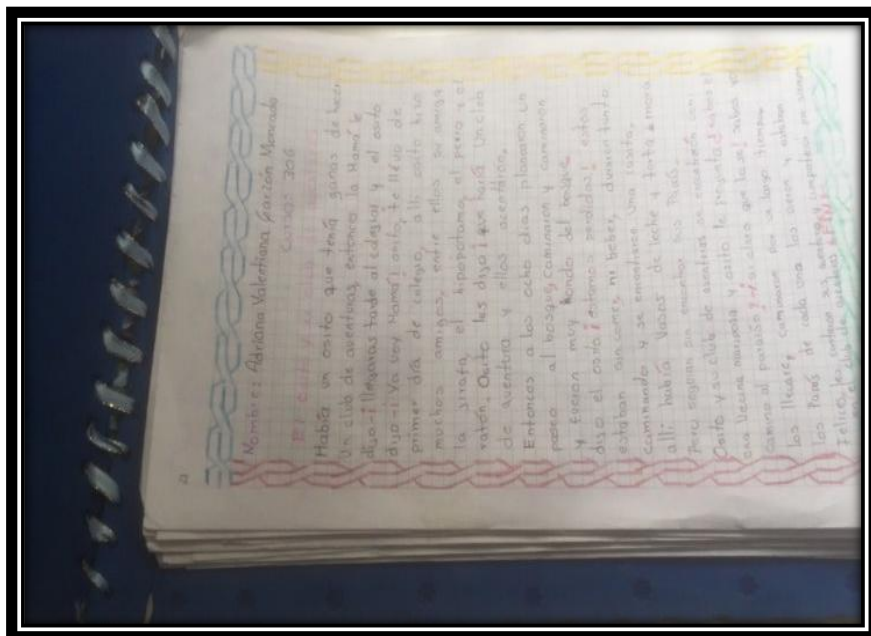 Nombre: Adriana Valentiana Garzón Monrada
Curso: 306
El
Había un osito que tenía ganas de hacer
un club de aventuras, entonces la Mamá le
dijo -¡llegaras tarde al colegio! y el osito
dijo -¡Ya voy Mamá! osito, te llevo de
primer día de colegio, alli osito hizo
muchos amigos, entre ellos su amiga
la jirafa, el hipopótamo, el perro y el
ratón. Osito les dijo ¡ que haría un club
de aventura y ellos acentarón.
Entonces a los ocho días planearon un
paseo al bosque, caminaron y caminaron
y fueron muy hondo del bosque
dijo el osito ¡estamos perdidos! estos
estaban sin comer, ni beber, duraron tanto
caminando y se encontraron una casita,
alli había Vasos de leche y torta de mora
Pero seguian sin encontrar sus Papás.
Osito y su club de aventuras se encontrarón con
una Vecina mariposa y osito le pregunto ¿ sabes el
camino al paraíso? -¡si claro que lo se!
los llevare, Caminaron por un largo tiempo
los Papás de cada uno los vieron y estaban
Felices,
en el club de aventuras. FIN